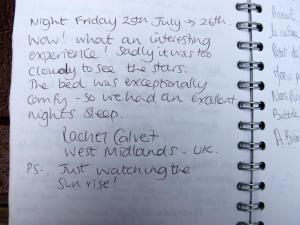 Night Friday 25th July → 26th.
Wow! what an interesting
experience! Sadly it was too
cloudy to see the stars.
The bed was exceptionally
comfy - so we had an excellent
nights sleep.
Rachel Calvert
West Midlands - UK.
PS. Just watching the
sun rise!